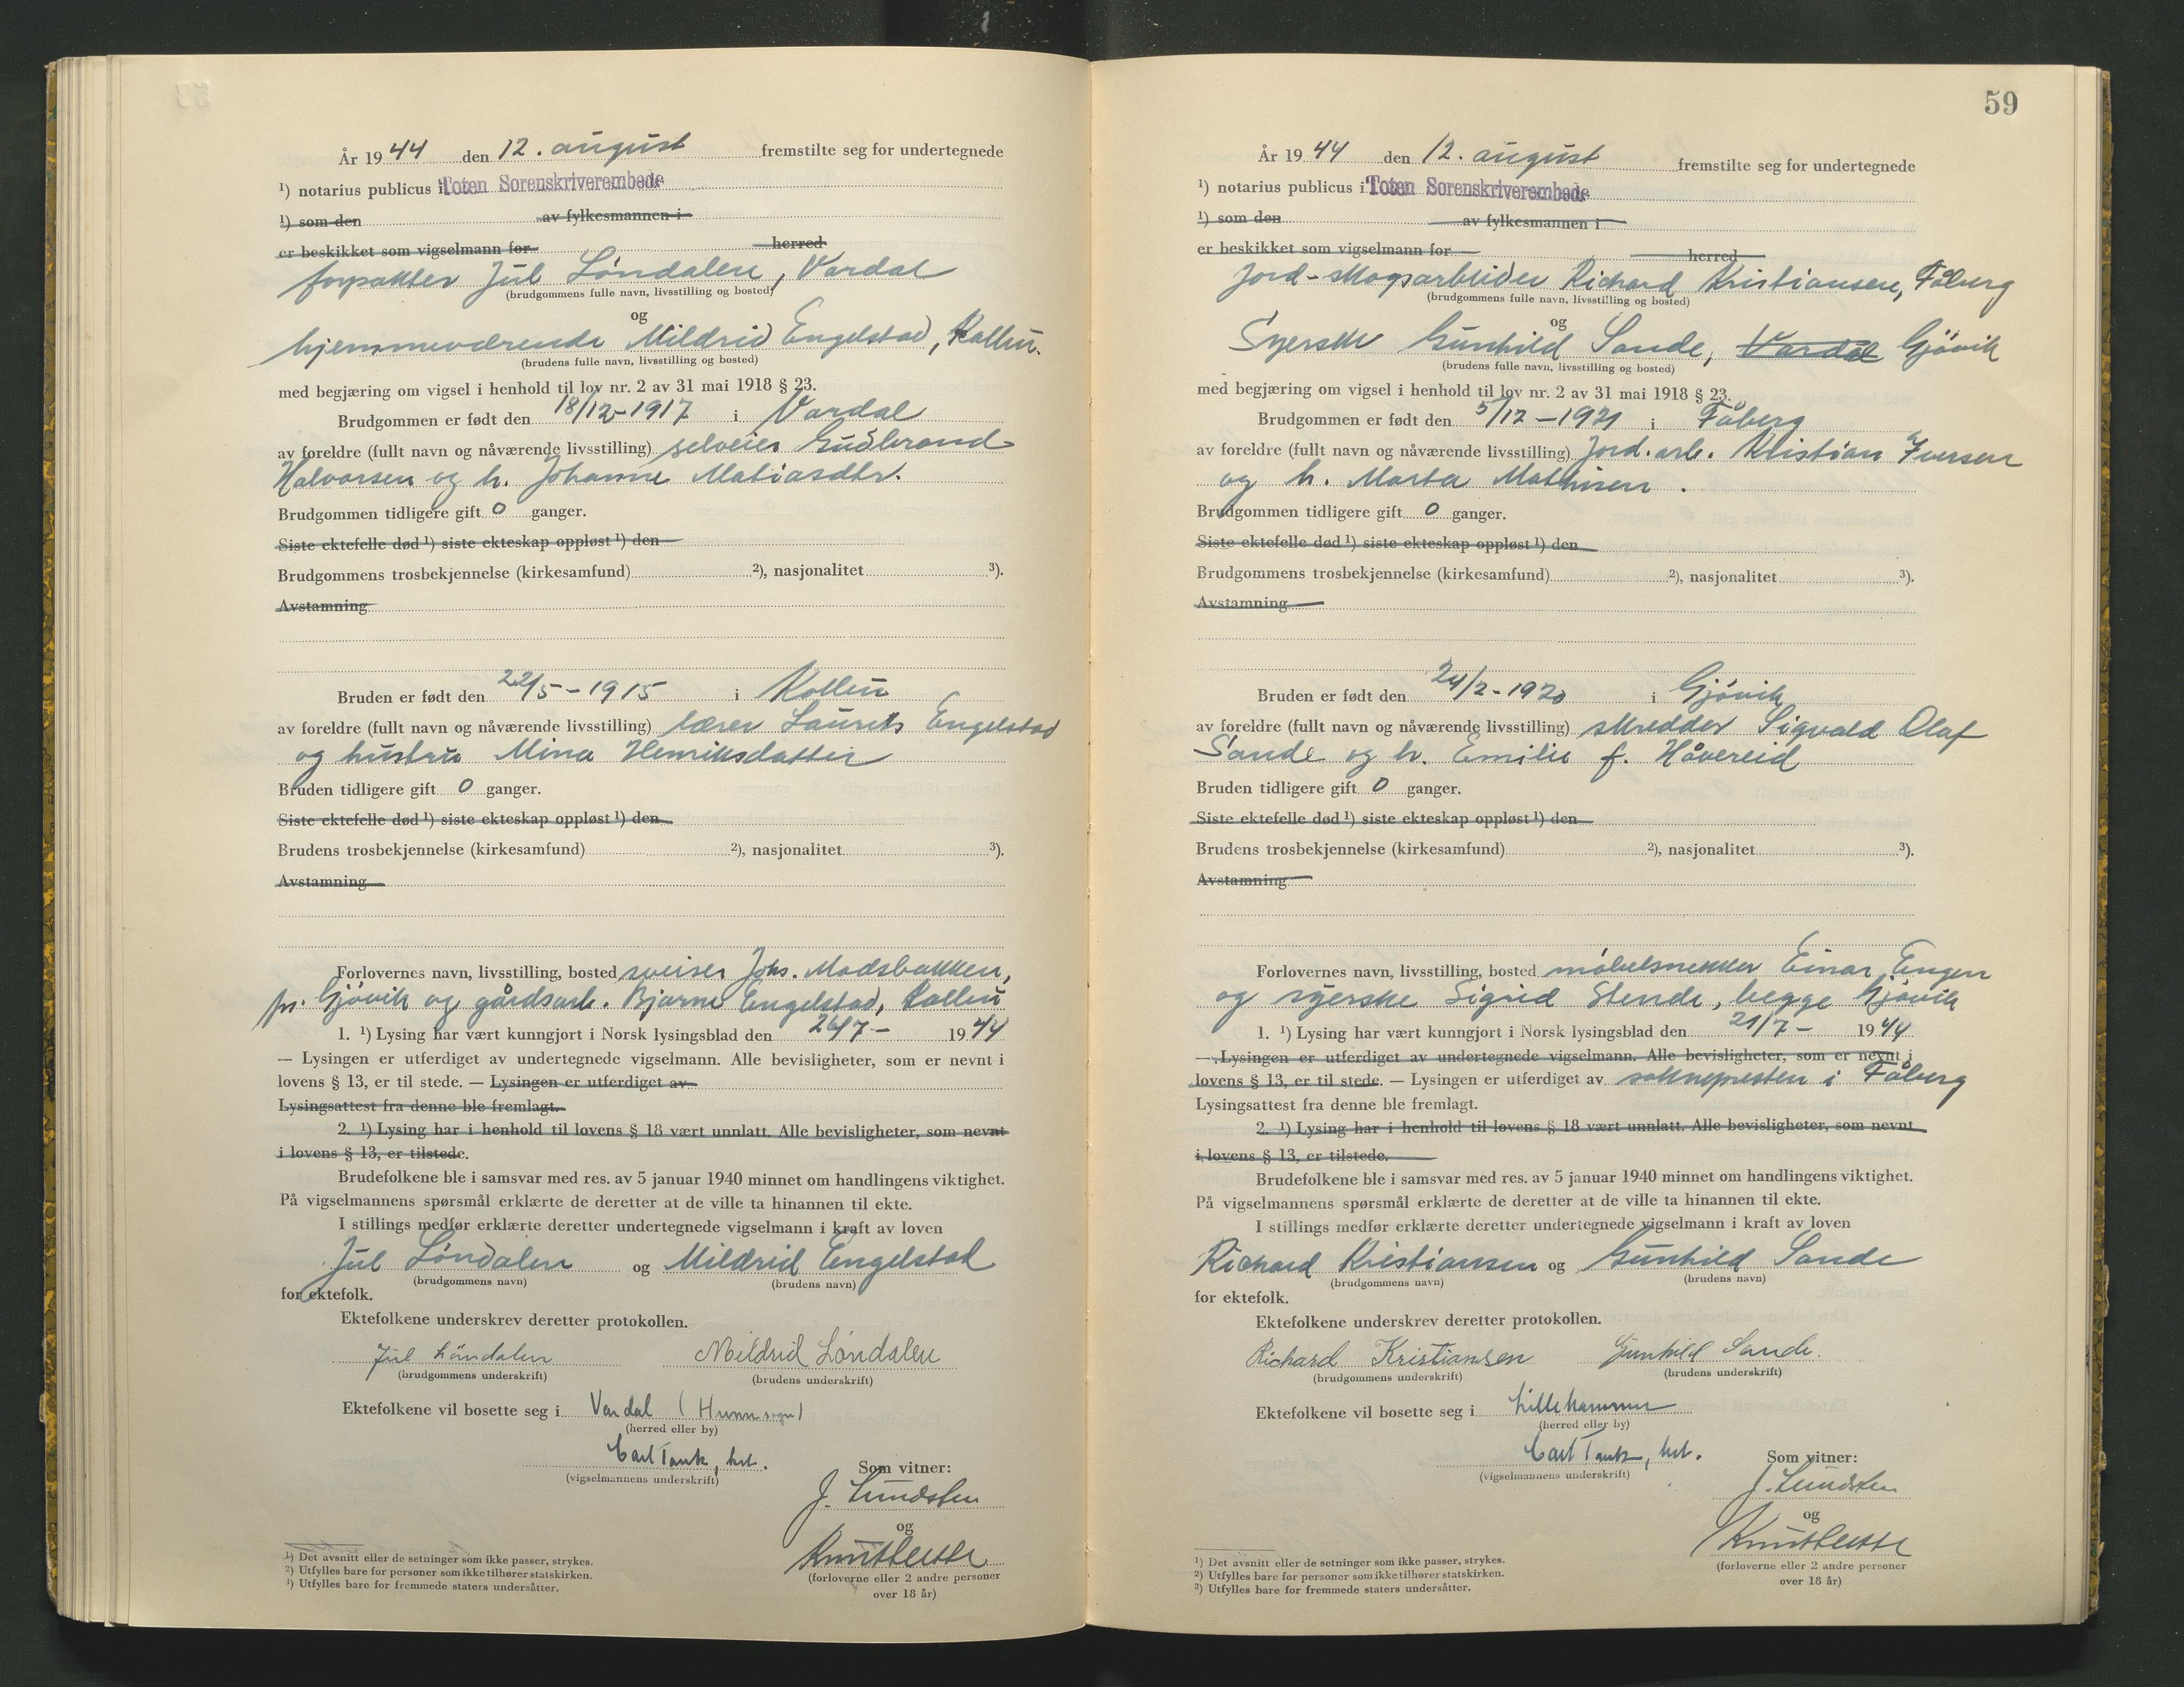 År 1944 den 12. august fremstilte seg for undertegnede
¹) notarius publicus i Toten Sorenskriverembede
¹) som den av fylkesmannen i
er beskikket som vigselmann for herred
forpakter Jul Løndalen, Vardal
(brudgommens fulle navn, livsstilling og bosted)
og
hjemmeværende Mildrid Engelstad, Kolbu.
(brudens fulle navn, livsstilling og bosted)
med begjæring om vigsel i henhold til lov nr. 2 av 31 mai 1918 § 23.
Brudgommen er født den 18/12-1917 i Vardal
av foreldre (fullt navn og nåværende livsstilling) selveier Gudbrand
Halvorsen og h. Johanne Matiasdtr.
Brudgommen tidligere gift 0 ganger.
Siste ektefelle død ¹) siste ekteskap oppløst ¹) den
Brudgommens trosbekjennelse (kirkesamfund) ²), nasjonalitet ³).
Avstamning
Bruden er født den 22/5-1915 i Kolbu
av foreldre (fullt navn og nåværende livsstilling) lærer Laurits Engelstad
og hustru Mina Henriksdatter
Bruden tidligere gift 0 ganger.
Siste ektefelle død ¹) siste ekteskap oppløst ¹) den
Brudens trosbekjennelse (kirkesamfund) ²), nasjonalitet ³).
Avstamning
Forlovernes navn, livsstilling, bosted sveiser Johs. Madsbakken,
pr. Gjøvik og gårdsarb. Bjarne Engelstad, Kolbu
1. ¹) Lysing har vært kunngjort i Norsk lysingsblad den 26/7- 1944
— Lysingen er utferdiget av undertegnede vigselmann. Alle bevisligheter, som er nevnt i
lovens § 13, er til stede. — Lysingen er utferdiget av
Lysingsattest fra denne ble fremlagt.
2. ¹) Lysing har i henhold til lovens § 18 vært unnlatt. Alle bevisligheter, som nevnt
i lovens § 13, er tilstede.
Brudefolkene ble i samsvar med res. av 5 januar 1940 minnet om handlingens viktighet.
På vigselmannens spørsmål erklærte de deretter at de ville ta hinannen til ekte.
I stillings medfør erklærte deretter undertegnede vigselmann i kraft av loven
Jul Løndalen og Mildrid Engelstad
(brudgommens navn) (brudens navn)
for ektefolk.
Ektefolkene underskrev deretter protokollen.
Jul Løndalen Mildrid Løndalen
(brudgommens underskrift) (brudens underskrift)
Ektefolkene vil bosette seg i Vardal (Hunn sogn)
(herred eller by)
Carl Tank, hst.
(vigselmannens underskrift)
Som vitner:
J. Lundsten
og
(forloverne eller 2 andre personer
over 18 år)
¹) Det avsnitt eller de setninger som ikke passer, strykes.
²) Utfylles bare for personer som ikke tilhører statskirken.
³) Utfylles bare for fremmede staters undersåtter.
59
År 1944 den 12. august fremstilte seg for undertegnede
¹) notarius publicus i Toten Sorenskriverembede
¹) som den av fylkesmannen i
er beskikket som vigselmann for herred
Jord-skogsarbeider Richard Kristiansen, Fåberg
(brudgommens fulle navn, livsstilling og bosted)
og
Syerske Gunhild Sande, Vardal Gjøvik
(brudens fulle navn, livsstilling og bosted)
med begjæring om vigsel i henhold til lov nr. 2 av 31 mai 1918 § 23.
Brudgommen er født den 5/12-1921 i Fåberg
av foreldre (fullt navn og nåværende livsstilling) Jord.arb. Kristian Iversen
og h. Marta Mathisen.
Brudgommen tidligere gift 0 ganger.
Siste ektefelle død ¹) siste ekteskap oppløst ¹) den
Brudgommens trosbekjennelse (kirkesamfund) ²), nasjonalitet ³).
Avstamning
Bruden er født den 24/2-1920 i Gjøvik
av foreldre (fullt navn og nåværende livsstilling) skredder Sigvald Olaf
Sande og h. Emilie f. Håvereid
Bruden tidligere gift 0 ganger.
Siste ektefelle død ¹) siste ekteskap oppløst ¹) den
Brudens trosbekjennelse (kirkesamfund) ²), nasjonalitet ³).
Avstamning
Forlovernes navn, livsstilling, bosted møbelsnekker Einar Engen
og syerske Sigrid Stende, begge Gjøvik
1. ¹) Lysing har vært kunngjort i Norsk lysingsblad den 21/7- 1944
— Lysingen er utferdiget av undertegnede vigselmann. Alle bevisligheter, som er nevnt i
lovens § 13, er til stede. — Lysingen er utferdiget av soknepresten i Fåberg
Lysingsattest fra denne ble fremlagt.
2. ¹) Lysing har i henhold til lovens § 18 vært unnlatt. Alle bevisligheter, som nevnt
i lovens § 13, er tilstede.
Brudefolkene ble i samsvar med res. av 5 januar 1940 minnet om handlingens viktighet.
På vigselmannens spørsmål erklærte de deretter at de ville ta hinannen til ekte.
I stillings medfør erklærte deretter undertegnede vigselmann i kraft av loven
Richard Kristiansen og Gunhild Sande
(brudgommens navn) (brudens navn)
for ektefolk.
Ektefolkene underskrev deretter protokollen.
Richard Kristiansen Gunhild Sande.
(brudgommens underskrift) (brudens underskrift)
Ektefolkene vil bosette seg i Lillehammer
(herred eller by)
Carl Tank, hst.
(vigselmannens underskrift)
Som vitner:
J. Lundsten
og
(forloverne eller 2 andre personer
over 18 år)
¹) Det avsnitt eller de setninger som ikke passer, strykes.
²) Utfylles bare for personer som ikke tilhører statskirken.
³) Utfylles bare for fremmede staters undersåtter.